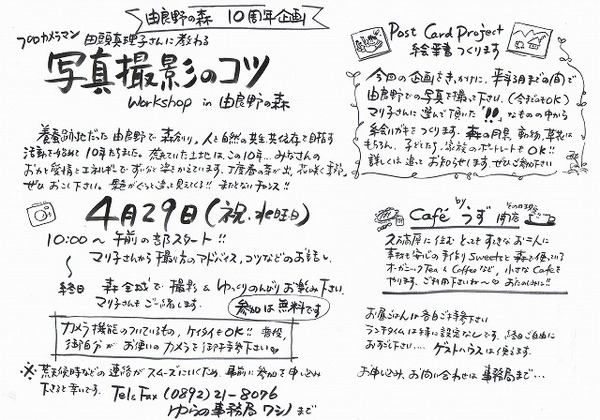 由良野の森 10周年企画
プロカメラマン 田頭真理子さんに教わる
写真撮影のコツ
Workshop in 由良野の森
養蚕跡地だった由良野で森創り、人と自然の共生共存を目指す
活動を始めて10年たちました。荒れていた土地は、この10年…みなさんの
おかげで
ぜひおこし下さい。
またとないチャンス!!
4月29日(祝・水曜日)
10:00~ 午前の部スタート!!
マリ子さんから撮り方のアドバイス、コツなどのお話を。
終日 森全域で撮影&ゆっくりのんびりお楽み下さい。
マリ子さんもご一緒します。
参加は無料です
カメラ機能のついているもの、ケイタイもOK!! 普段、
御自分がお使いのカメラを御持参下さい
※荒天候時などの連絡がスムーズにいくため、事前に参加を申し込み
下さると幸いです。 Tel&Fax (0892)21-8076
ゆらの事務局 ワシノまで
Post Card Project
絵葉書つくります
今回の企画をきっかけに、半年後までの間で
由良野での写真を撮って下さい。(今までのもOK)
マリ子さんに選んで頂いた"!!"なものの中から
絵ハガキをつくります。森の風景、動物、草花は
もちろん、子どもたち、家族のポートレートもOK!!
詳しくは追ってお知らせします。ぜひご参加下さい
Café by うず その日限り 開店
久万高原に住むとってもすてきなお二人に
素材も安心の手作りSweetsと森で使っている
オーガニックTea & Coffeeなど、小さなCafeを
やります。ご利用下さいね~♡ おたのしみに!!
お昼ごはんは各自ご持参下さい
ランチタイムは特に設定なしです。終日ご自由に
おすごし下さい… ゲストハウスは使えます。
お申し込み、お問い合わせは事務局まで…